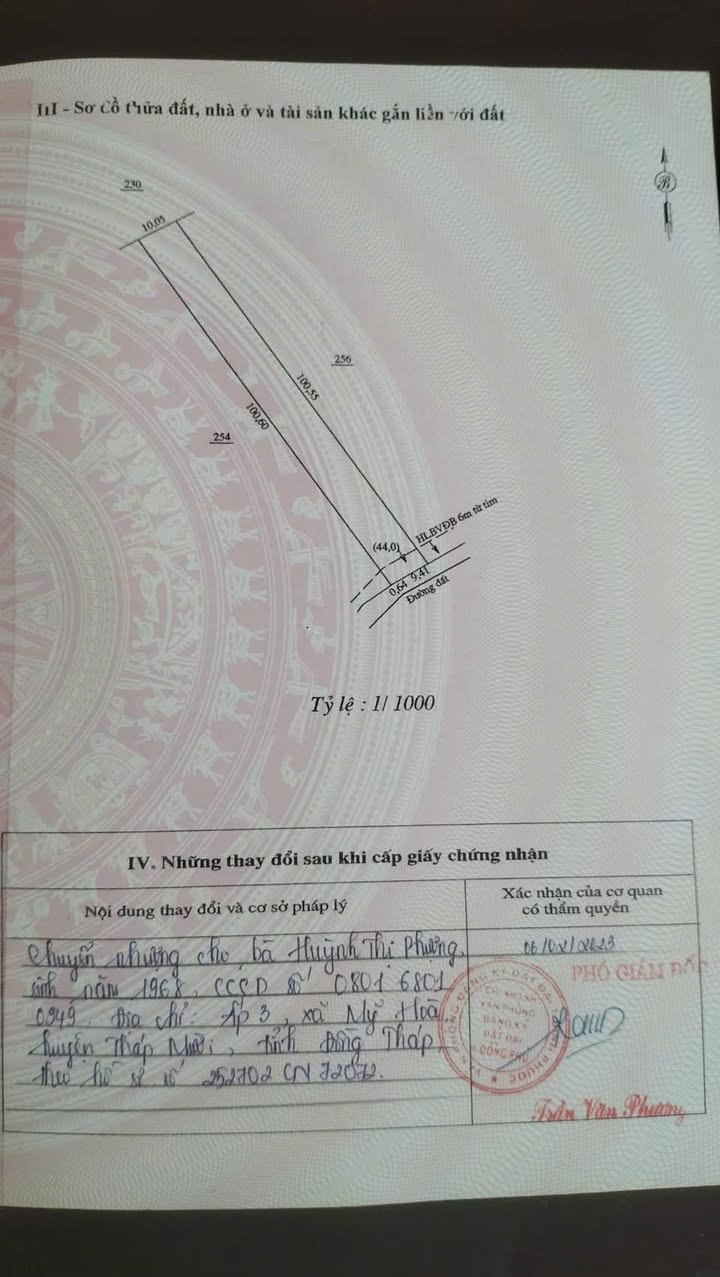 III - Sơ đồ thửa đất, nhà ở và tài sản khác gắn liền với đất
B
230
10,05
256
100,55
100,60
254
HLBVĐB 6m từ tim
(44,0)
0,64 9,41
Đường đất
Tỷ lệ : 1/ 1000
IV. Những thay đổi sau khi cấp giấy chứng nhận
Nội dung thay đổi và cơ sở pháp lý
Xác nhận của cơ quan có thẩm quyền
Chuyển nhượng cho bà Huỳnh Thị Phượng,
sinh năm 1968, CCCD số 0801 6801
0349. Địa chỉ: Ấp 3, xã Mỹ Hoà,
huyện Tháp Mười, tỉnh Đồng Tháp,
theo hồ sơ số 252702 CN 72072.
PHÓ GIÁM ĐỐC
VĂN PHÒNG ĐĂNG KÝ ĐẤT ĐAI
CHI NHÁNH
VĂN PHÒNG
ĐĂNG KÝ
ĐẤT ĐAI
Trần Văn Phương